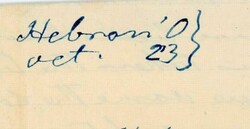 Hebron' O }
Oct. 23 }